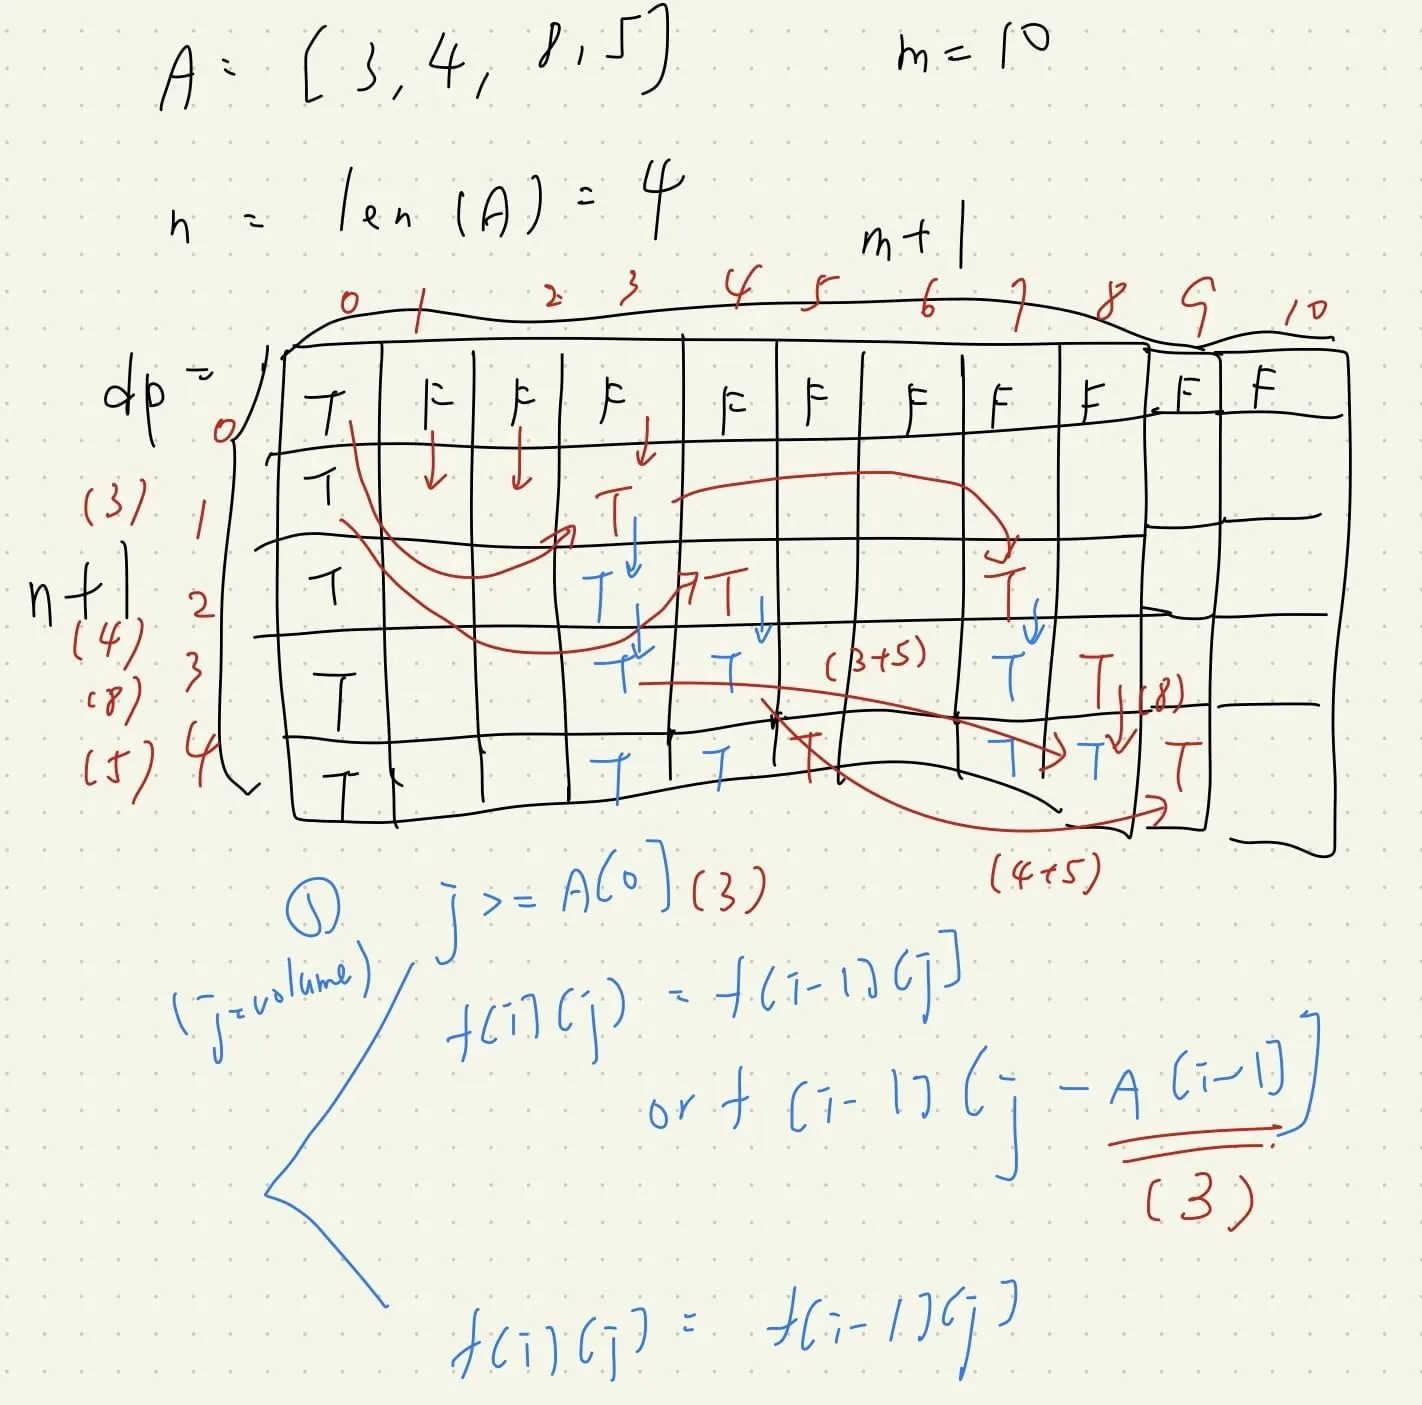 A = [3, 4, 8, 5] m = 10
n = len (A) = 4
m+1
0 1 2 3 4 5 6 7 8 9 10
dp =
0 T F F F F F F F F F F
(3) 1 T T
n+1
2 T T T T
(4)
(8) 3 T T T (3+5) T T (8)
(5) 4 T T T T T T T
(4+5)
① j >= A[0] (3)
(j=volume)
f[i][j] = f[i-1][j]
or f [i-1][j - A[i-1]]
(3)
f[i][j] = f[i-1][j]